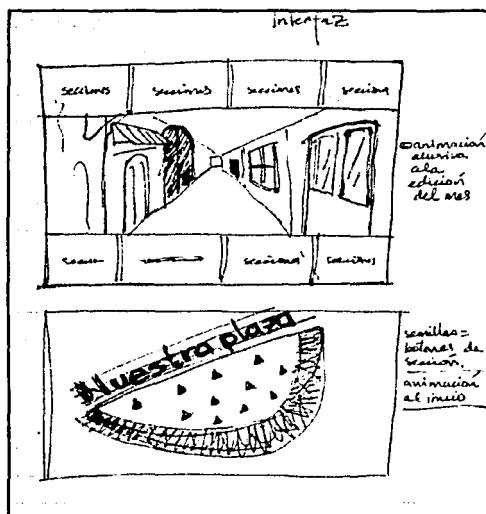 interfaz
secciones secciones secciones secciones
animación
alusiva
a la
edición
del mes
secciones secciones
Nuestra plaza
semillas =
botones de
sección.
animación
al inicio